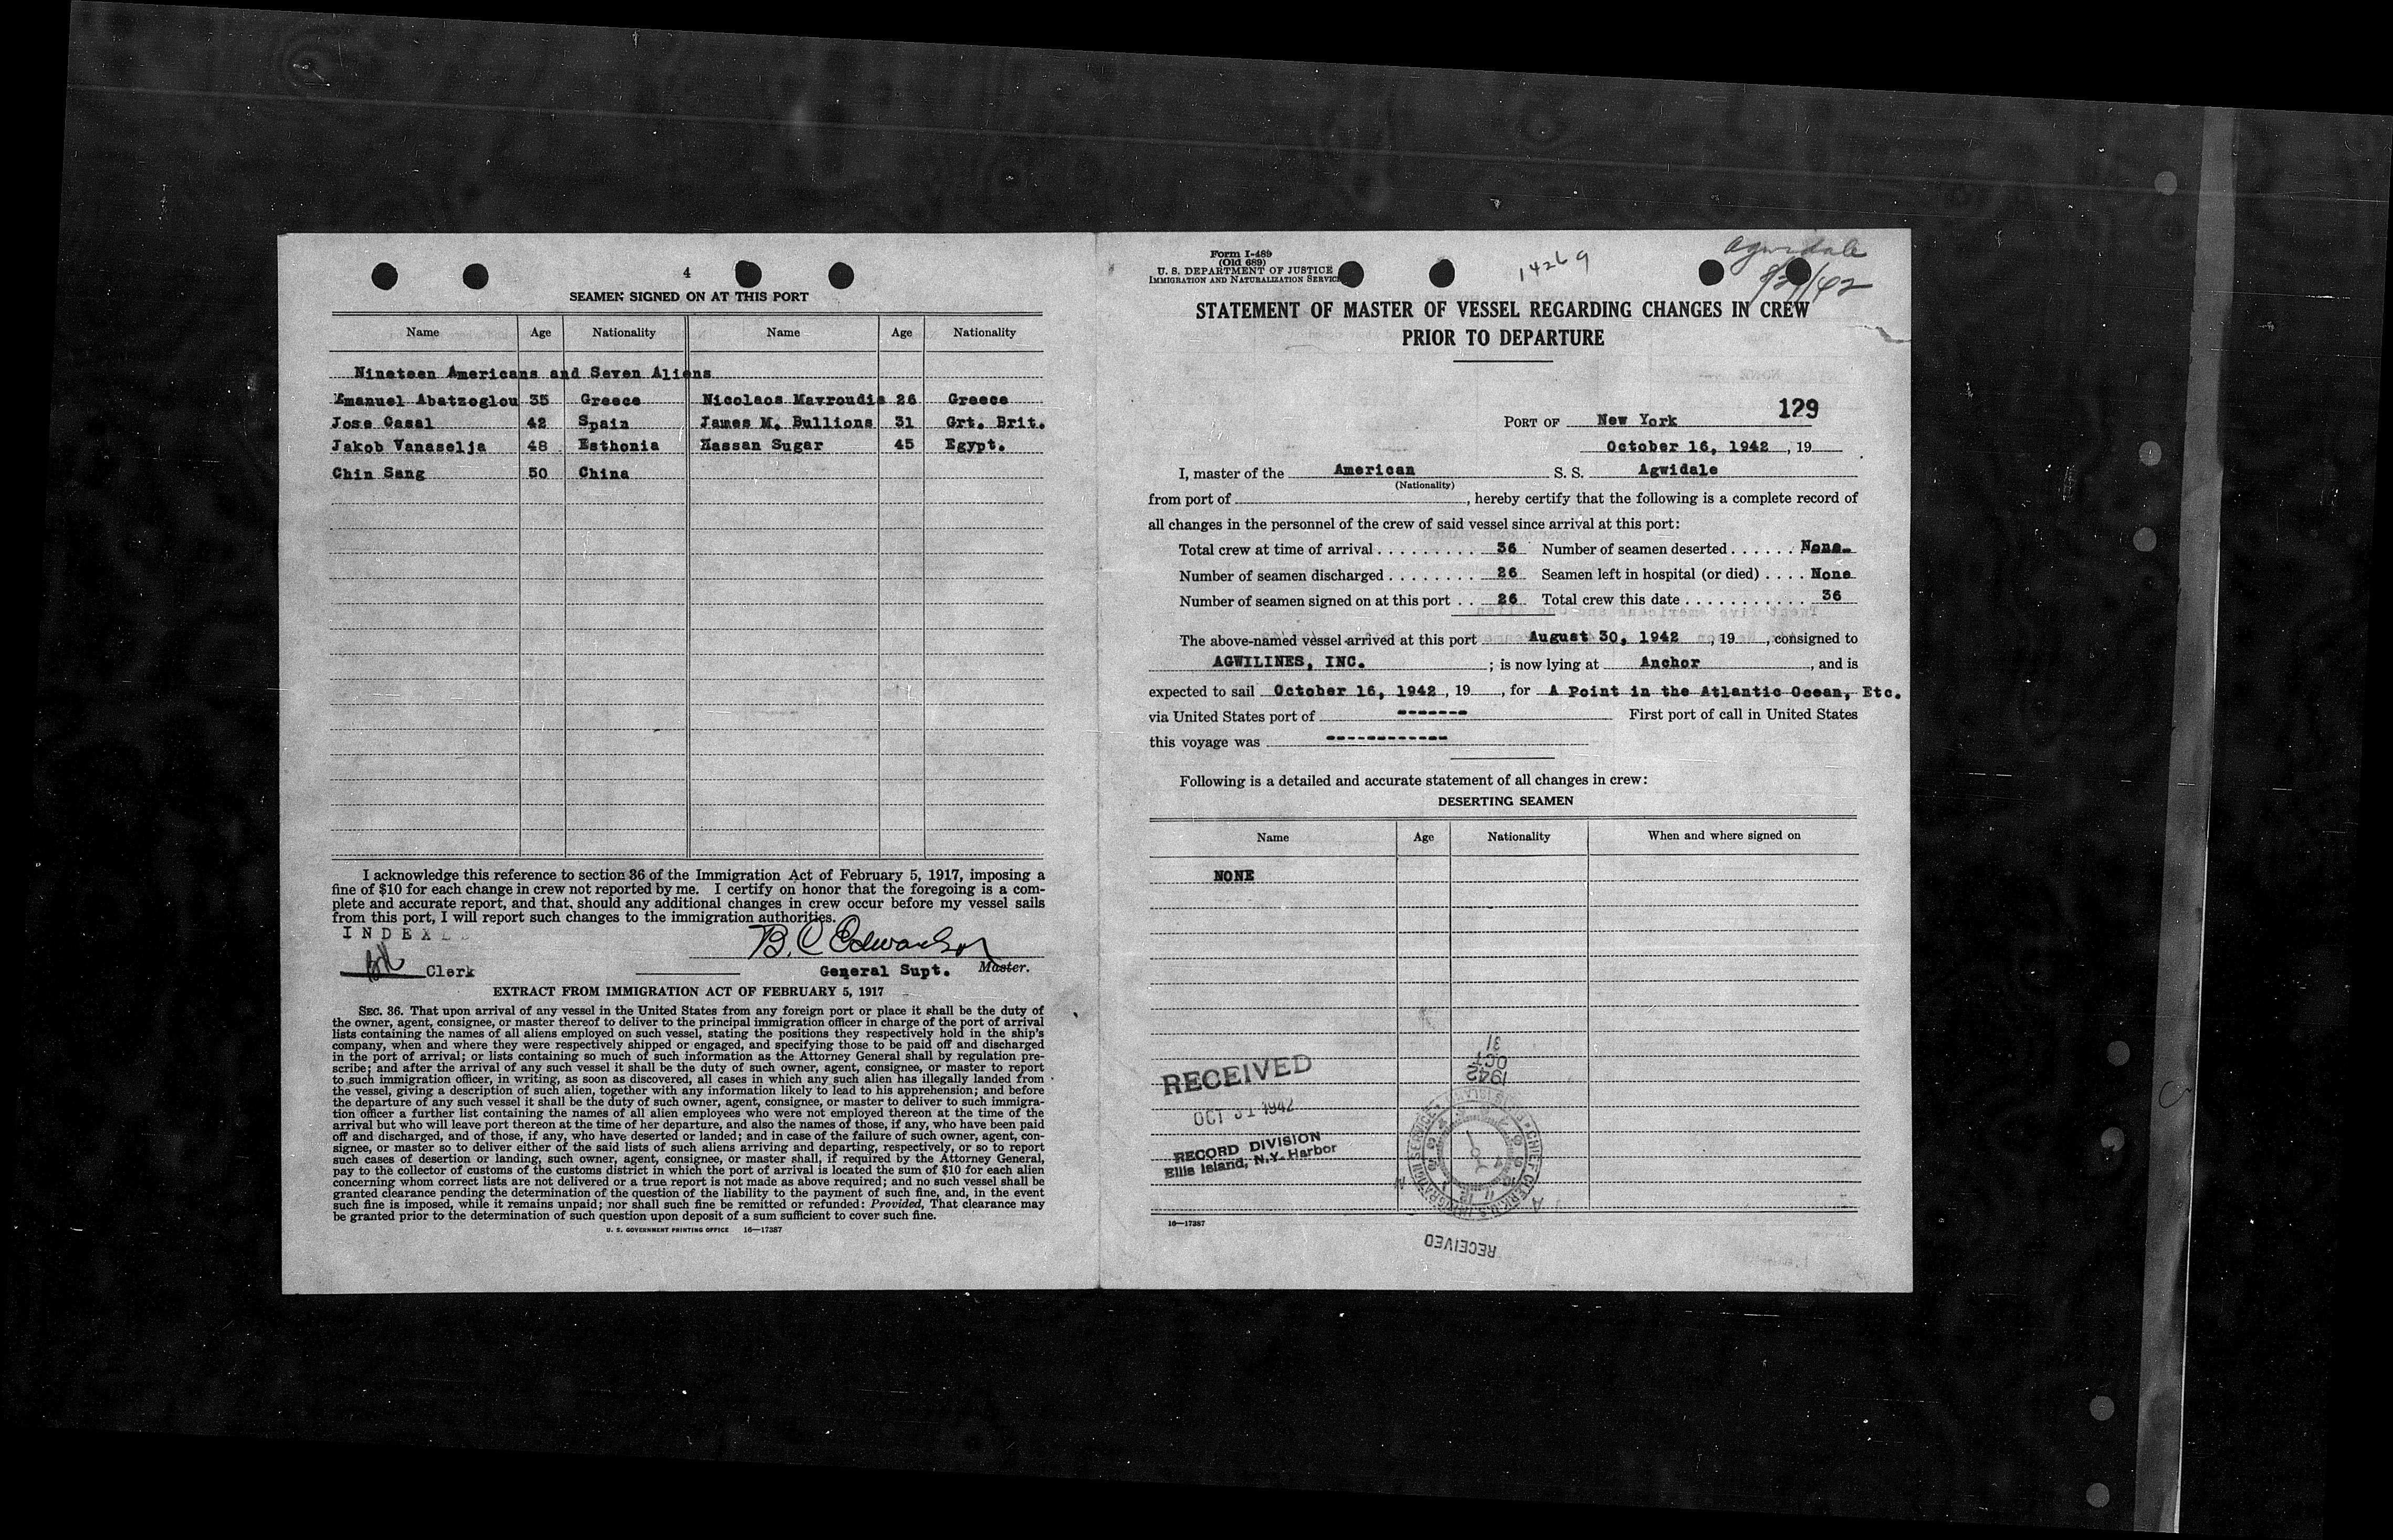 4
SEAMEN SIGNED ON AT THIS PORT
Name Age Nationality Name Age Nationality
Nineteen Americans and Seven Aliens
Emanuel Abatzoglou 35 Greece Nicolaos Mavroudis 26 Greece
Jose Casal 42 Spain James M. Bullions 31 Grt. Brit.
Jakob Vanaselja 48 Esthonia Hassan Sugar 45 Egypt.
Chin Sang 50 China
I acknowledge this reference to section 36 of the Immigration Act of February 5, 1917, imposing a
fine of $10 for each change in crew not reported by me. I certify on honor that the foregoing is a com-
plete and accurate report, and that, should any additional changes in crew occur before my vessel sails
from this port, I will report such changes to the immigration authorities.
INDEX
B. C. Edwardson
Clerk
General Supt. Master.
EXTRACT FROM IMMIGRATION ACT OF FEBRUARY 5, 1917
SEC. 36. That upon arrival of any vessel in the United States from any foreign port or place it shall be the duty of
the owner, agent, consignee, or master thereof to deliver to the principal immigration officer in charge of the port of arrival
lists containing the names of all aliens employed on such vessel, stating the positions they respectively hold in the ship's
company, when and where they were respectively shipped or engaged, and specifying those to be paid off and discharged
in the port of arrival; or lists containing so much of such information as the Attorney General shall by regulation pre-
scribe; and after the arrival of any such vessel it shall be the duty of such owner, agent, consignee, or master to report
to such immigration officer, in writing, as soon as discovered, all cases in which any such alien has illegally landed from
the vessel, giving a description of such alien, together with any information likely to lead to his apprehension; and before
the departure of any such vessel it shall be the duty of such owner, agent, consignee, or master to deliver to such immigra-
tion officer a further list containing the names of all alien employees who were not employed thereon at the time of the
arrival but who will leave port thereon at the time of her departure, and also the names of those, if any, who have been paid
off and discharged, and of those, if any, who have deserted or landed; and in case of the failure of such owner, agent, con-
signee, or master so to deliver either of the said lists of such aliens arriving and departing, respectively, or so to report
such cases of desertion or landing, such owner, agent, consignee, or master shall, if required by the Attorney General,
pay to the collector of customs of the customs district in which the port of arrival is located the sum of $10 for each alien
concerning whom correct lists are not delivered or a true report is not made as above required; and no such vessel shall be
granted clearance pending the determination of the question of the liability to the payment of such fine, and, in the event
such fine is imposed, while it remains unpaid; nor shall such fine be remitted or refunded: Provided, That clearance may
be granted prior to the determination of such question upon deposit of a sum sufficient to cover such fine.
U. S. GOVERNMENT PRINTING OFFICE 16—17387
Form I-489
(Old 689)
U. S. DEPARTMENT OF JUSTICE
IMMIGRATION AND NATURALIZATION SERVICE
14269
Agwidale
STATEMENT OF MASTER OF VESSEL REGARDING CHANGES IN CREW
PRIOR TO DEPARTURE
129
PORT OF New York
October 16, 1942, 19
I, master of the American S. S. Agwidale
(Nationality)
from port of , hereby certify that the following is a complete record of
all changes in the personnel of the crew of said vessel since arrival at this port:
Total crew at time of arrival . . . . . . . . . 36 Number of seamen deserted . . . . . . None.
Number of seamen discharged . . . . . . . . 26 Seamen left in hospital (or died) . . . . None
Number of seamen signed on at this port . . 26 Total crew this date . . . . . . . . . . . 36
The above-named vessel arrived at this port August 30, 1942 , 19 , consigned to
AGWILINES, INC. ; is now lying at Anchor , and is
expected to sail October 16, 1942 , 19 , for A Point in the Atlantic Ocean, Etc.
via United States port of ------- First port of call in United States
this voyage was ------------
Following is a detailed and accurate statement of all changes in crew:
DESERTING SEAMEN
Name Age Nationality When and where signed on
NONE
RECEIVED
OCT 31 1942
RECORD DIVISION
Ellis Island, N.Y. Harbor
1942
OCT
31
CHIEF CLERK U.S. IMMIGRATION SERVICE
RECEIVED
16—17387